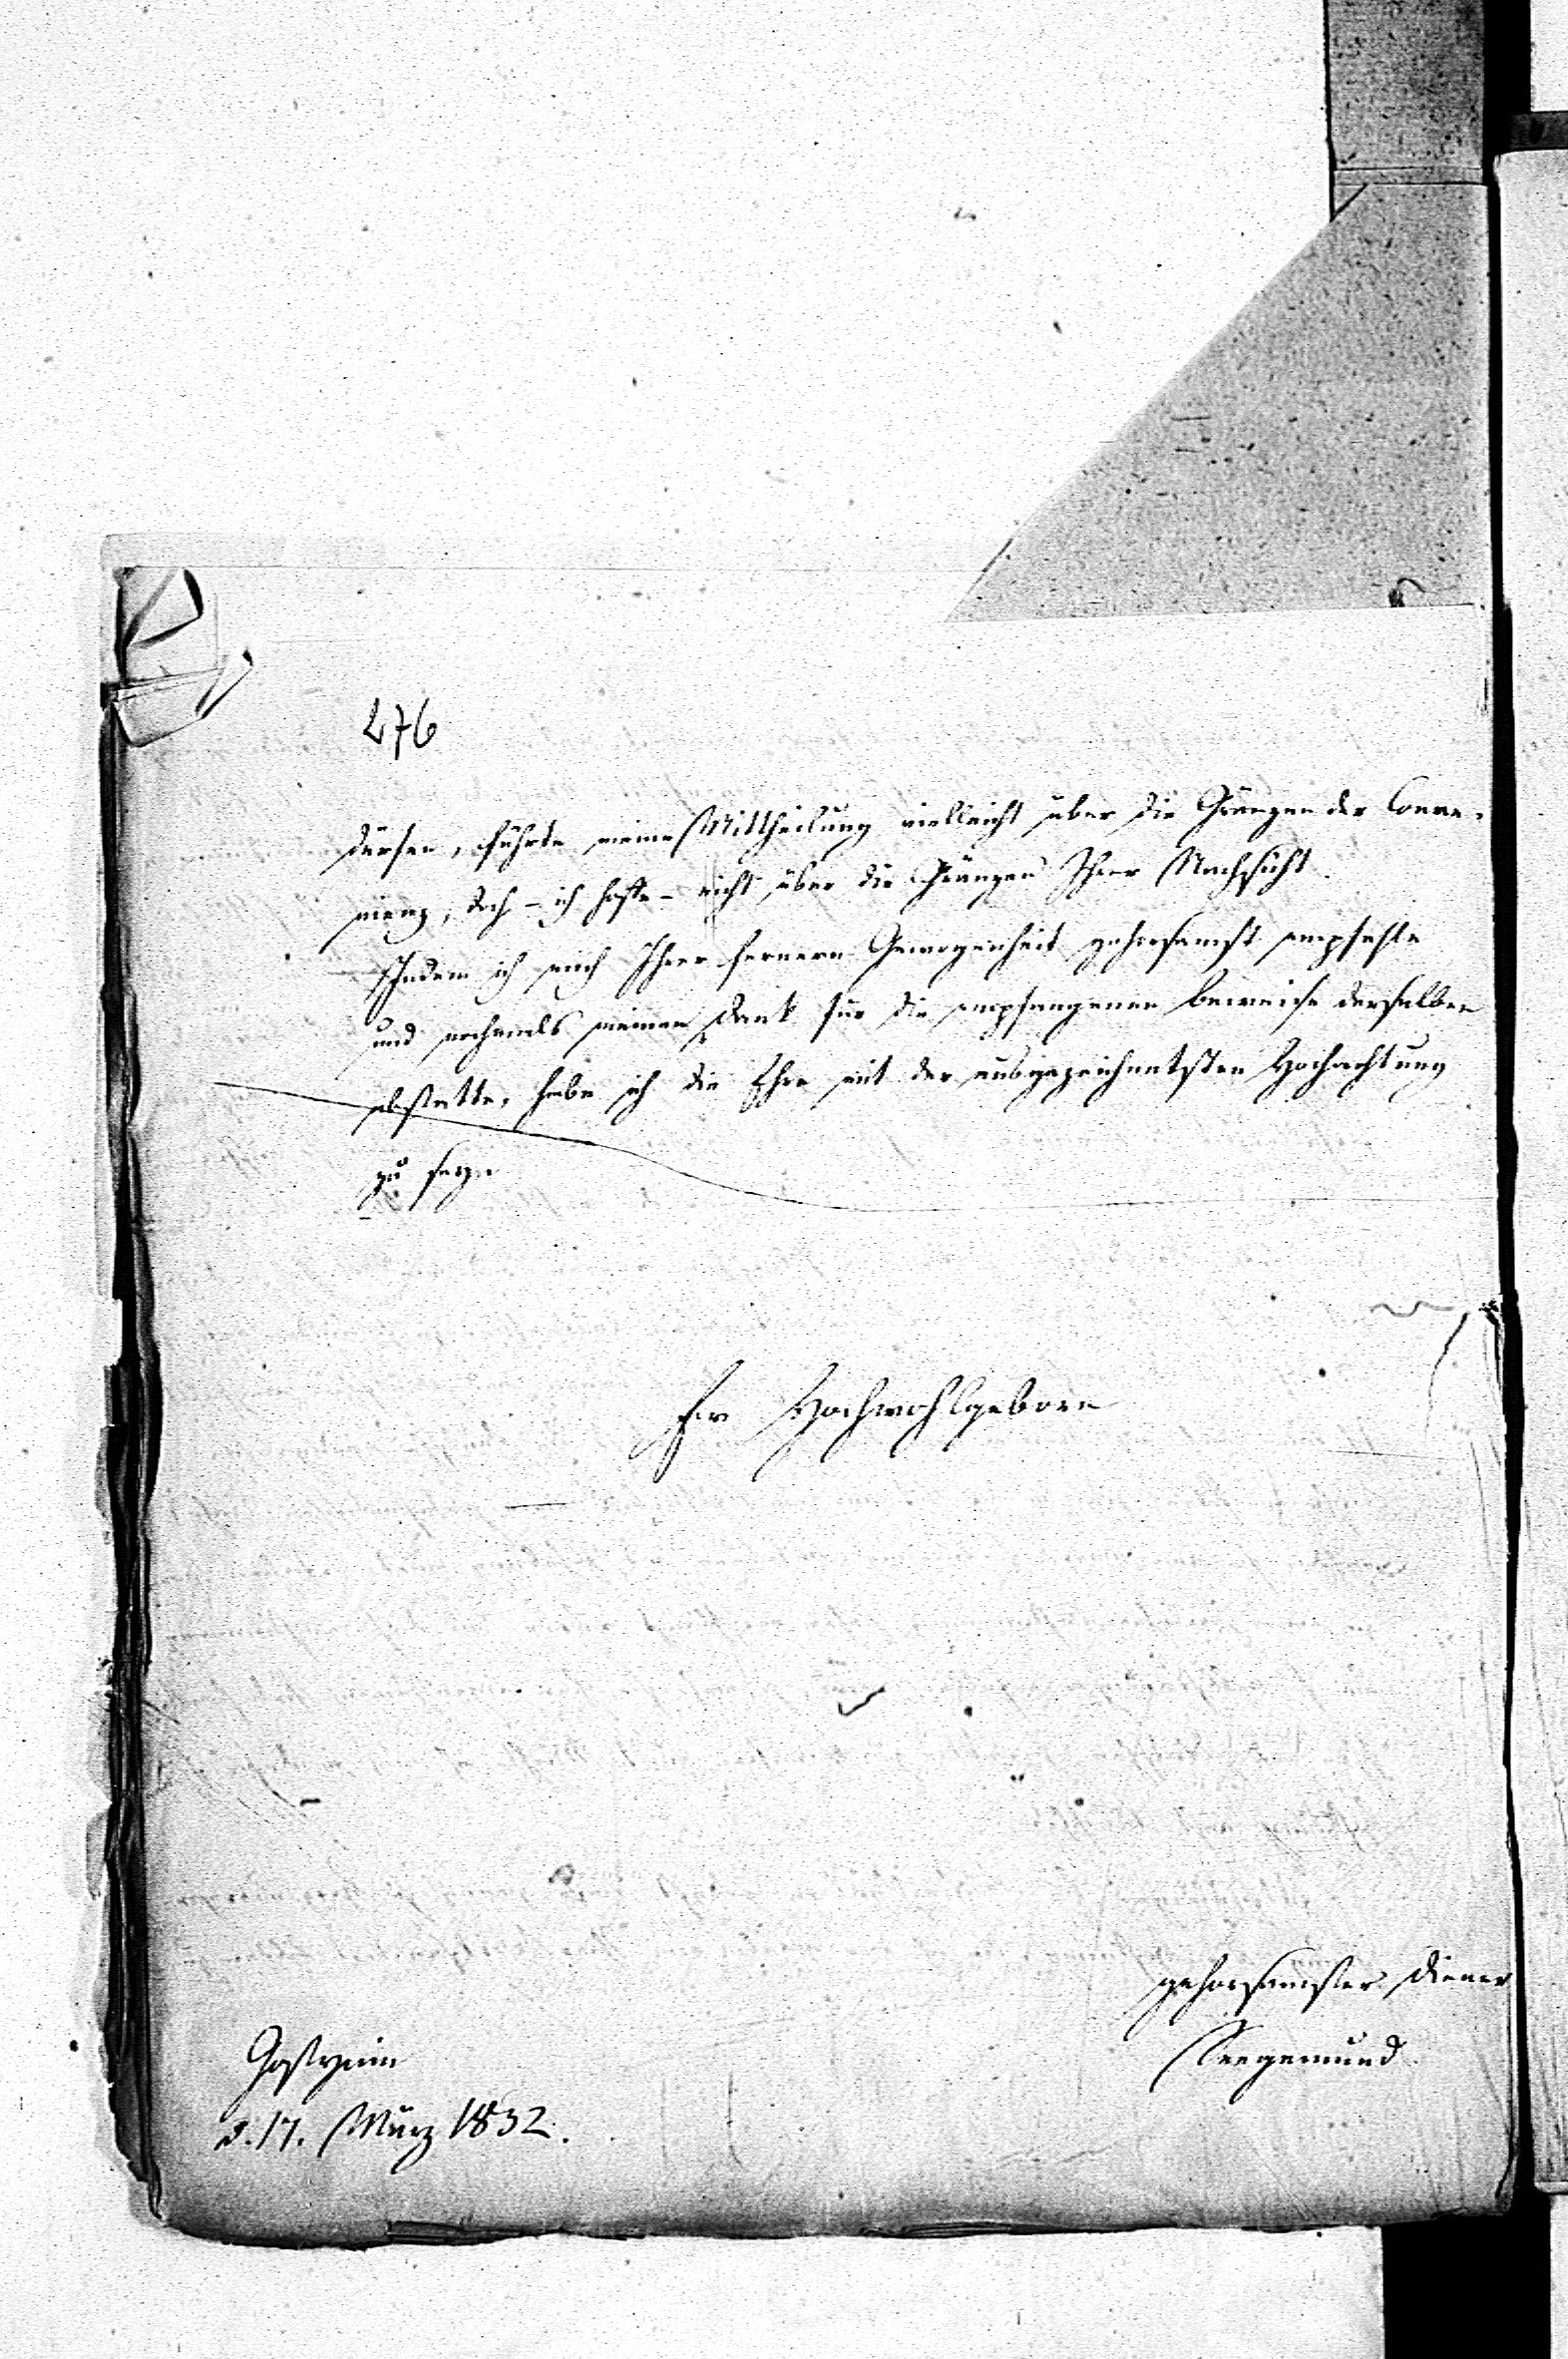 276
dürfen, führte meine Mittheilung vielleicht über die Gränzen der Conve-
nienz, doch - ich hoffe - nicht über die Gränzen Ihrer Nachsicht.
Indem ich mich Ihrer fernern Gewogenheit gehorsamst empfehle
und nochmals meinen Dank für die empfangenen beweise derselben
abstatte, habe ich die Ehre mit der ausgezeichnetsten Hochachtung
zu seyn
Ew Hochwohlgeborn
gehorsamster Diener
Seegemund
Gostynin
d. 17. März 1832.